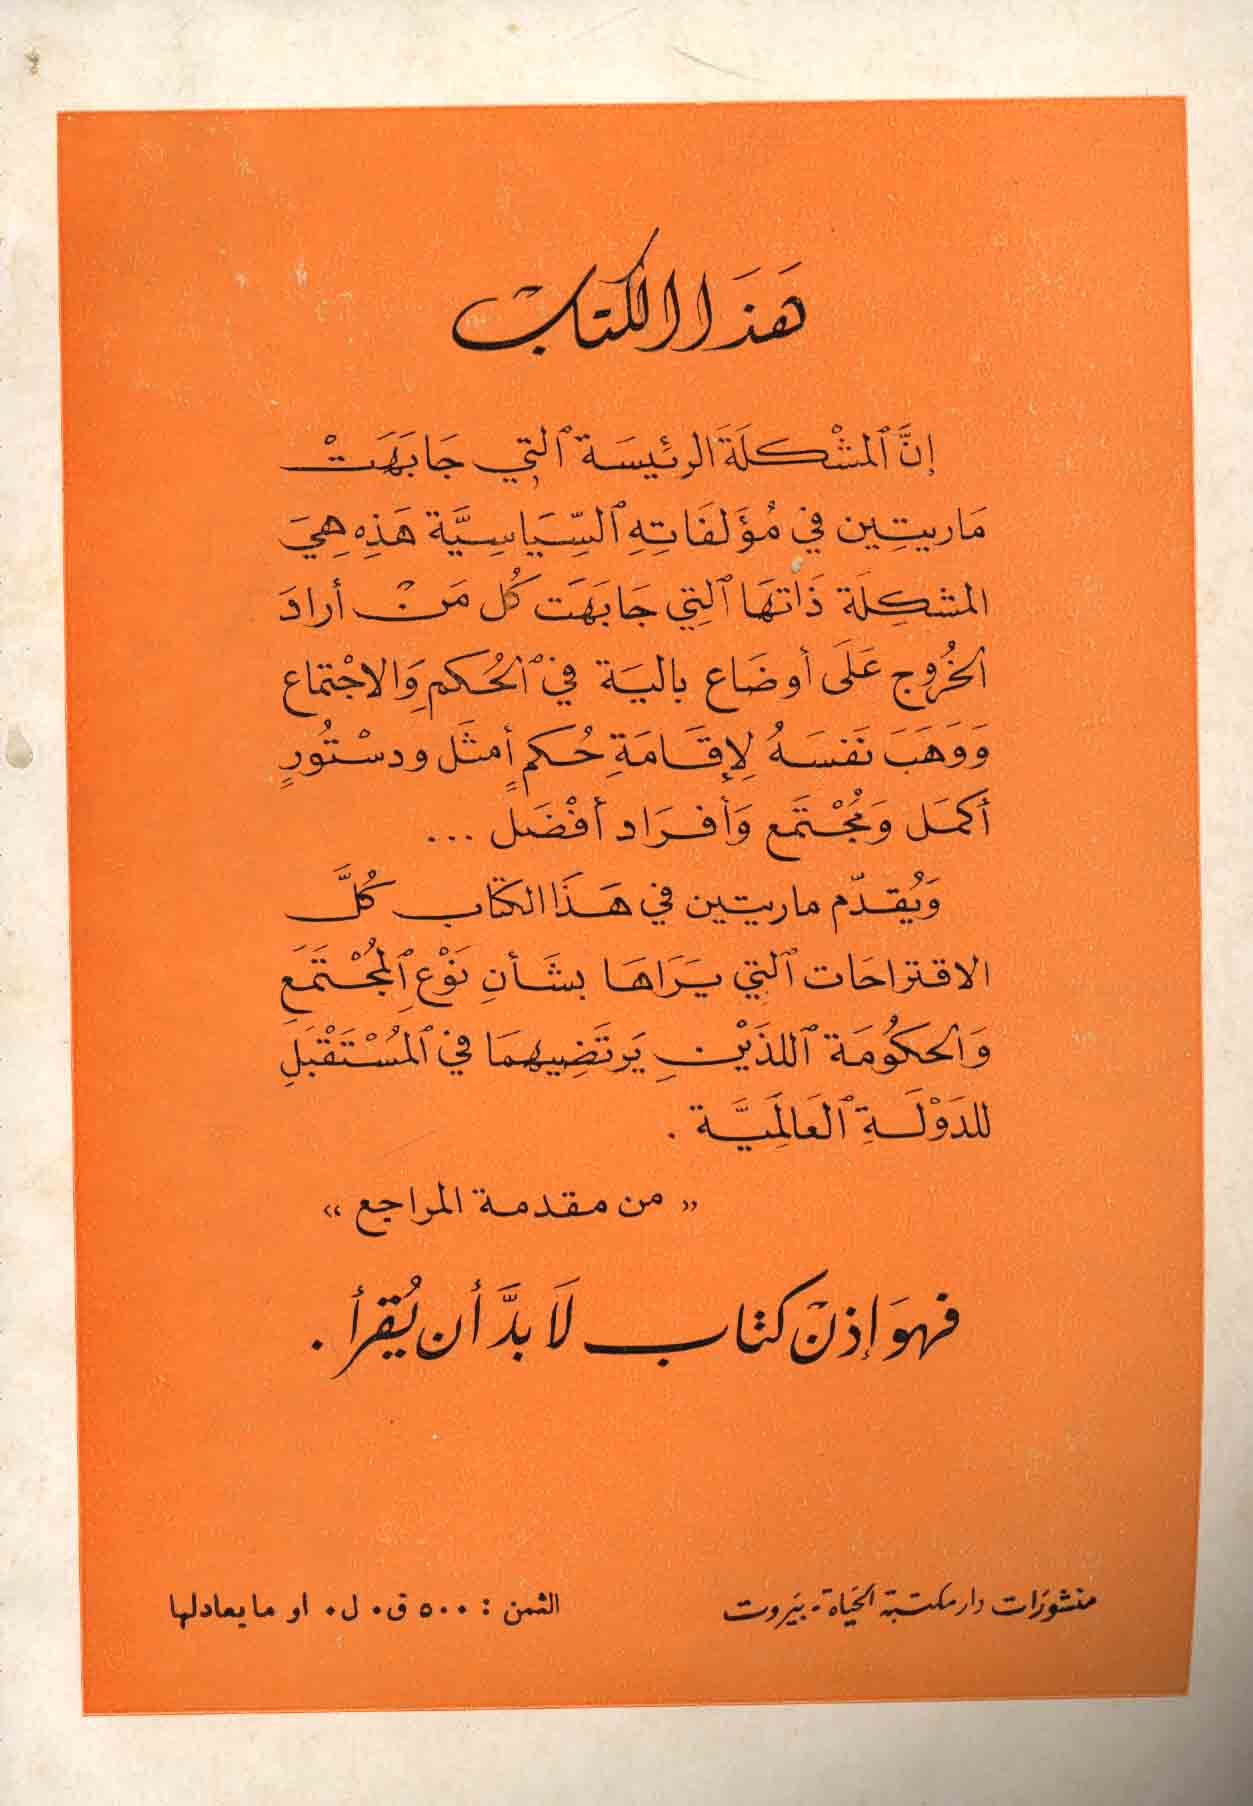 هَذَا الكِتَابْ
إنَّ ٱلمشْكلَةَ الرئيسَة ٱلتِي جَابَهَتْ
مَاريتين في مُؤَلفَاتهِ ٱلسِّيَاسِيَّة هَذِه هِيَ
المشكِلَة ذَاتهَا ٱلتِي جَابَهَت كُل مَنْ أرادَ
الخُرُوج عَلَى أوضَاع بالية في ٱلحُكم وَالاجْتماع
وَوَهَبَ نَفسَهُ لِإقَامَةِ حُكمٍ أمثَل ودسْتُورٍ
أكمَل وَمُجْتَمع وَأفرَاد أفْضَل ...
وَيُقدّم ماريتين في هَذَا الكتاب كُلَّ
الاقتراحَات ٱلتي يَرَاهَا بشَأنِ نَوْعِ ٱلمُجْتَمَعِ
وَالحكُومَة ٱللذَيْنِ يَرتَضِيهمَا في ٱلمُسْتَقْبَلِ
للدَوْلَةِ ٱلعَالَمِيَّة .
« من مقدمة المراجع »
فهوَ إذنْ كتاب لَا بدَّ أن يُقرأ .
منشورَات دار مكتبة الحيَاة - بَيروت
الثمن : ٥٠٠ ق٠ ل٠ او ما يعادلها